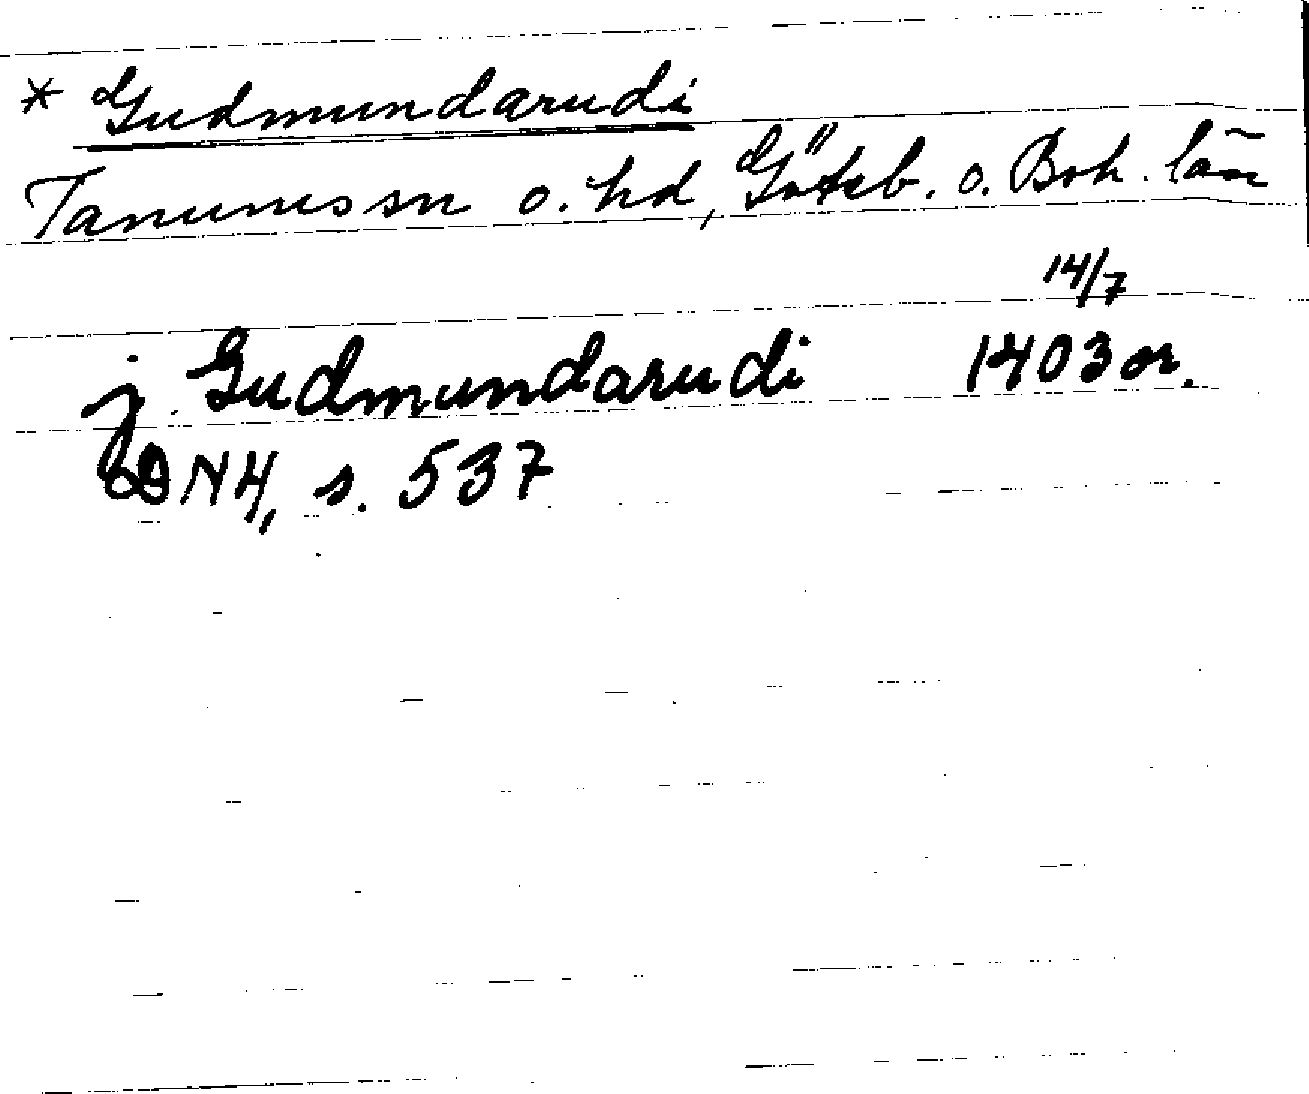 * Gudmundarudi
Tanums sn o. hd, Göteb. o. Boh. län
14/7
j Gudmundarudi 1403 or.
DN 4, s. 537